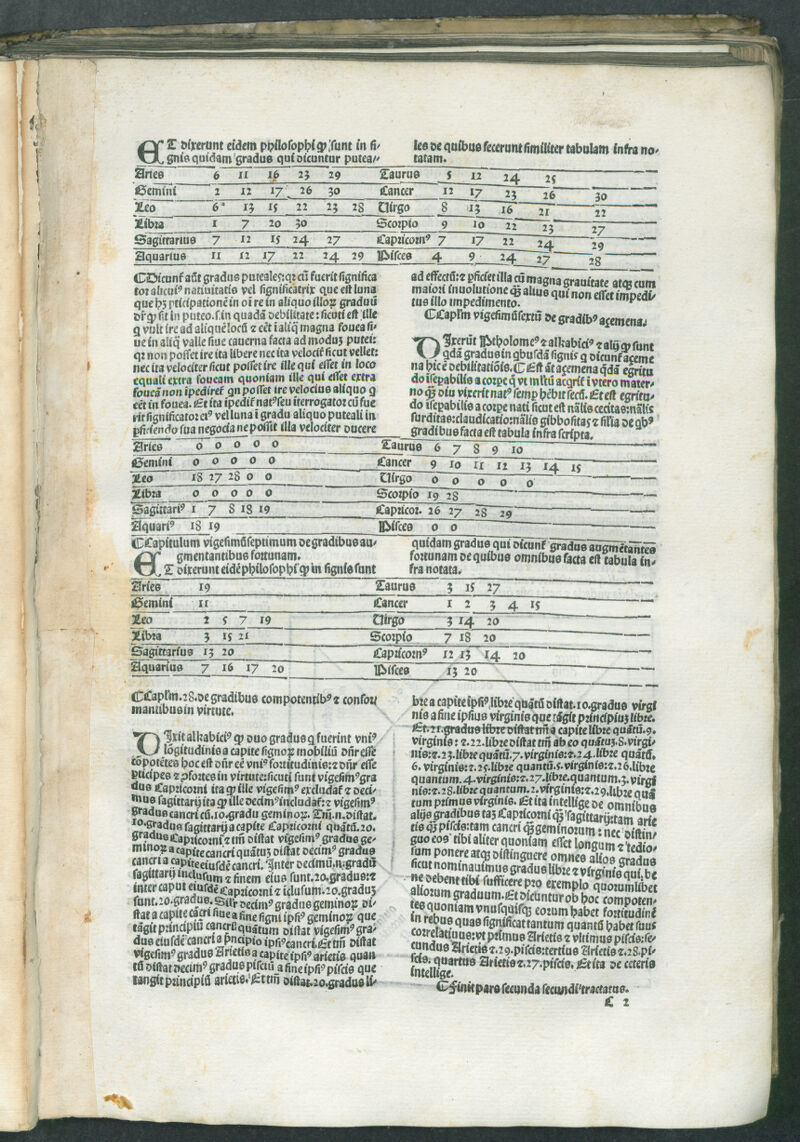 ET dixerunt eidem philosophi ꝙ sunt in si-
gnis quidam gradus qui dicuntur putea-
les de quibus fecerunt similiter tabulam infra no-
tatam.
Aries 6 11 16 23 29 Taurus 5 12 24 25
Gemini 2 12 17 26 30 Cancer 12 17 23 26 30
Leo 6 13 15 22 23 28 Uirgo 8 13 16 21 22
Libra 1 7 20 30 Scorpio 9 10 22 23 27
Sagittarius 7 12 15 24 27 Capricornꝰ 7 17 22 24 29
Aquarius 11 12 17 22 24 29 Pisces 4 9 24 27 28
¶Dicunt̃ aũt gradus puteales: qꝛ cũ fuerit significa
tor alicuiꝰ natiuitatis vel significatrix que est luna
que hꝫ ꝑticipationẽ in oĩ re in aliquo illoꝝ graduũ
dr̃ ꝙ sit in puteo .s. in quadã debilitate: sicuti est ille
q̇ vult ire ad aliquẽ locũ ⁊ eẽt ĩ aliq̃ magna fouea si-
ue in aliq̃ valle siue cauerna facta ad modũ putei:
qꝛ non posset ire ita libere nec ita velocit̃ sicut vellet:
nec ita velociter sicut posset ire ille qui esset in loco
equali extra foueam quoniam ille qui esset extra
foueã non ĩpediret̃ qn posset ire velocius aliquo q̇
eẽt in fouea. Et ita ĩpedit̃ natꝰ seu ĩterrogator cũ fue
rit significator eiꝰ vel luna ĩ gradu aliquo puteali in
ꝑficiendo sua negocia ne possit illa velociter ducere
ad effectũ: ⁊ ꝑficiet illa cũ magna grauitate atqꝫ cum
maiori inuolutione q̃ alius qui non esset impedi-
tus illo impedimento.
¶Capl̃m vigesimũsextũ de gradibꝰ açemena.
DIxerũt Ptholomeꝰ ⁊ alkabiciꝰ ⁊ alij ꝙ sunt
q̇dã gradus in q̇busdã signis q̇ dicunt̃ açeme
na hic ẽ debilitatiõis. ¶Est aũt açemena q̇dã egritu
do ĩsepabilis a corꝑe q̃ vt ml̃tũ acq̇rit̃ ĩ vtero mater-
no q̃ diu vixerit natꝰ semꝑ hẽbit secũ. Et est egritu-
do ĩsepabilis a corꝑe nati sicut est nãlis cecitas: nãlis
surditas: claudicatio: nãlis gibbositas ⁊ sil̃ia de q̇bꝰ
gradibus facta est tabula infra scripta.
Aries 0 0 0 0 0 Taurus 6 7 8 9 10
Gemini 0 0 0 0 0 Cancer 9 10 11 12 13 14 15
Leo 18 27 28 0 0 Uirgo 0 0 0 0 0
Libra 0 0 0 0 0 Scorpio 19 28
Sagittariꝰ 1 7 8 18 19 Capricor. 26 27 28 29
Aquariꝰ 18 19 Pisces 0 0
¶Capitulum vigesimũseptimum de gradibus au-
gmentantibus fortunam.
ET dixerunt eidẽ philosophi ꝙ in signis sunt
quidam gradus qui dicunt̃ gradus augmẽtantes
fortunam de quibus omnibus facta est tabula in-
fra notata.
Aries 19 Taurus 3 15 27
Gemini 11 Cancer 1 2 3 4 15
Leo 2 5 7 19 Uirgo 3 14 20
Libra 3 15 21 Scorpio 7 18 20
Sagittarius 13 20 Capricornꝰ 12 13 14 20
Aquarius 7 16 17 20 Pisces 13 20
¶Capl̃m. 28. de gradibus compotentibꝰ ⁊ confor-
mantibus in virtute.
DIxit alkabiciꝰ ꝙ duo gradus q̇ fuerint vniꝰ
lõgitudinis a capite signoꝝ mobiliũ dñr esse
cõpotẽtes hoc est dñr eẽ vniꝰ fortitudinis: ⁊ dñr esse
ꝑticipes ⁊ ꝯfortes in virtute: sicuti sunt vigesimꝰ gra
dus Capricorni ita ꝙ ille vigesimꝰ excludat̃ ⁊ deci-
mus sagittarij ita ꝙ ille decimꝰ includat̃: ⁊ vigesimꝰ
gradus cancri cũ .10. gradu geminoꝝ. Tm̃. n. distat.
10. gradus sagittarij a capite Capricorni quãtũ. 20.
gradus Capricorni ⁊ tm̃ distat vigesimꝰ gradus ge-
minoꝝ a capite cancri quãtuꝫ distat decimꝰ gradus
cancri a capite eiusdẽ cancri. Inter decimũ. n. gradũ
sagittarij inclusum ⁊ finem eius sunt. 20. gradus: ⁊
inter caput eiusdẽ Capricorni ⁊ ĩclusum. 20. graduꝫ
sunt. 20. gradus. Silr̃ decimꝰ gradus geminoꝝ di-
stat a capite cãcri siue a fine signi ipsiꝰ geminoꝝ que
tãgit principiũ cancri quãtum distat vigesimꝰ gra-
dus eiusdẽ cancri a p̃ncipio ipsiꝰ cancri. Et tm̃ distat
vigesimꝰ gradus Arietis a capite ipsiꝰ arietis quan
tũ distat decimꝰ gradus pisciũ a fine ipsiꝰ piscis que
tangit principiũ arietis. Et tm̃ distat. 20. gradus li-
bre a capite ipsiꝰ libre quãtũ distat. 10. gradus virgi
nis a fine ipsius virginis que tãgit principiuꝫ libre.
Et. 21. gradus libre distat tm̃ a capite libre quãtũ. 9.
virginis: ⁊. 22. libre distat tm̃ ab eo quãtuꝫ. 8. virgi-
nis: ⁊. 23. libre quãtũ. 7. virginis: ⁊. 24. libre quãtũ.
6. virginis: ⁊. 25. libre quantũ. 5. virginis: ⁊. 26. libre
quantum. 4. virginis: ⁊. 27. libre. quantum. 3. virgi
nis: ⁊. 28. libre quantum. 2. virginis: ⁊. 29. libre quã
tum primus virginis. Et ita intellige de omnibus
alijs gradibus taꝫ Capricorni q̃ sagittarij: tam arie
tis q̃ piscis: tam cancri q̃ geminorum: nec distin-
guo eosꝰ tibi aliter quoniam esset longum ⁊ tedio-
sum ponere atqꝫ distinguere omnes alios gradus
sicut nominauimus gradus libre ⁊ virginis qui, be
ne debent tibi sufficere pro exemplo quorumlibet
aliorum graduum. Et dicuntur ob hoc compoten-
tes quoniam vnusquisqꝫ eorum habet fortitudinẽ
in rebus quas significat tantum quantũ habet suus
correlatiuus: vt primus Arietis ⁊ vltimus piscis: se-
cundus Arietis ⁊. 29. piscis: tertius Arietis ⁊. 28. pi-
scis. quartus Arietis ⁊. 27. piscis. Et ita de ceteris
intellige.
¶Finit pars secunda secundi tractatus.
C 2